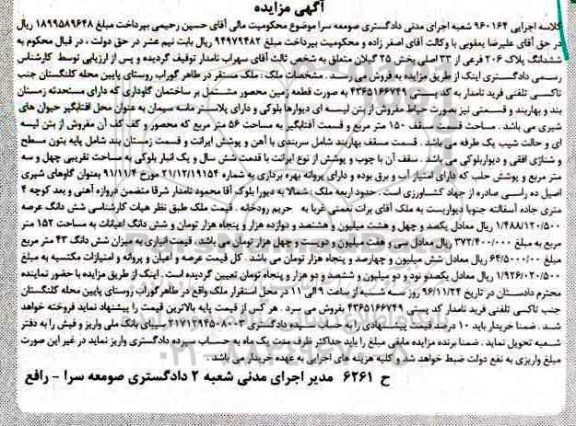 آگهی مزایده
کلاسه اجرایی ۹۶۰۱۶۴ شعبه اجرای مدنی دادگستری صومعه سرا موضوع محکومیت مالی آقای حسین رحیمی بپرداخت مبلغ ۱۸۹۹۵۸۹۶۴۸ ریال
در حق آقای علیرضا یعقوبی با وکالت آقای اصغر زاده و محکومیت بپرداخت مبلغ ۹۴۹۷۹۴۸۲ ریال بابت نیم عشر در حق دولت ، در قبال محکوم به
ششدانگ پلاک ۲۰۶ فرعی از ۳۳ اصلی بخش ۲۵ گیلان متعلق به شخص ثالث آقای سهراب نامدار توقیف گردیده و پس از ارزیابی توسط کارشناس
رسمی دادگستری اینک از طریق مزایده به فروش می رسد . مشخصات ملک : ملک مستقر در طاهر گوراب روستای پایین محله کلنگستان جنب
تاکسی تلفنی فرید نامدار به کد پستی ۴۳۶۵۱۶۶۷۴۹ به صورت قطعه زمین محصور مشتمل بر ساختمان گاوداری که دارای مستحدثه زمستان
بند و بهاربند و قسمتی نیز بصورت حیاط مفروش از بتن لیسه ای دیوارها بلوکی و دارای پلاستر ماسه سیمان به عنوان محل آفتابگیر حیوان های
شیری می باشد . مساحت قسمت مسقف ۱۵۰ متر مربع و قسمت آفتابگیر به مساحت ۵۶ متر مربع که محصور و کف کف آن مفروش از بتن لیسه
ای و حالت شیب یک طرفه می باشد . قسمت مسقف بهاربند شامل سربندی با آهن و پوشش ایرانت و قسمت زمستان بند شامل پایه بتون مسطح
و شناژی افقی و دیواربلوکی می باشد . سقف آن با چوب و پوشش از نوع ایرانت با قدمت شش سال و یک انبار بلوکی به مساحت تقریبی چهل و سه
متر مربع و پوشش حلب که دارای امتیاز آب و برق بوده و دارای پروانه بهره برداری به شماره ۲۱/۱۲/۱۹۱۵۴ مورخ ۹۱/۱۱/۴ بعنوان گاوهای شیری
اصیل ده راسی صادره از جهاد کشاورزی است. حدود اربعه ملک : شمالا به دیورا بلوک آقا محمود نامدار شرقا منضمن دروازه آهنی و بعد کوچه ۴
متری جاده آسفالته جنوبا دیواریست به ملک آقای برات نعمتی غربا به حریم رودخانه . قیمت ملک طبق نظر هیات کارشناسی شش دانگ عرصه
۱/۴۸۸/۱۲۰/۵۰۰ ریال معادل یکصد و چهل و هشت میلیون و هشتصد و دوازده هزار و پنجاه هزار تومان و شش دانگ اعیانات به مساحت ۱۵۲ متر
مربع به مبلغ ۳۷۲/۴۰۰/۰۰۰ ریال معادل سی و هفت میلیون و دویست و چهل هزار تومان می باشد. قیمت انباری به میزان شش دانگ ۴۳ متر مربع
به مبلغ ۶۴/۵۰۰/۰۰۰ ریال معادل شش میلیون و چهارصد و پنجاه هزار تومان می باشد . کل قیمت عرصه و اعیان و پروانه و امتیازات مکتسبه به مبلغ
۱/۹۲۶/۰۲۰/۵۰۰ ریال معادل یکصد و نود و دو میلیون و ششصد و دو هزار و پنجاه تومان تعیین گردیده است . اینک از طریق مزایده با حضور نماینده
محترم دادستان در تاریخ ۹۶/۱۱/۲۴ روز سه شنبه از ساعت ۹ الی ۱۱ در محل استقرار ملک واقع در طاهر گوراب روستای پایین محله کلنگستان
جنب تاکسی تلفنی فرید نامدار کد پستی ۴۳۶۵۱۶۶۷۴۹ بفروش می رسد . هر کس از قیمت پایه بالاترین قیمت را پیشنهاد نماید فروخته خواهد
شد . ضمنا خریدار باید ۱۰ درصد قیمت پیشنهادی را به حساب سپرده دادگستری ۲۱۷۱۲۹۴۵۰۸۰۰۳ سیبای بانک ملی واریز و فیش را به دفتر
شعبه تحویل نماید . ضمنا برنده مزایده مابقی مبلغ را باید حداکثر ظرف مدت یک ماه به حساب سپرده دادگستری واریز نماید در غیر این صورت
مبلغ واریزی به نفع دولت ضبط خواهد شد و کلیه هزینه های اجرایی به عهده خریدار می باشد .
ح ۶۲۶۱ مدیر اجرای مدنی شعبه ۲ دادگستری صومعه سرا – رافع